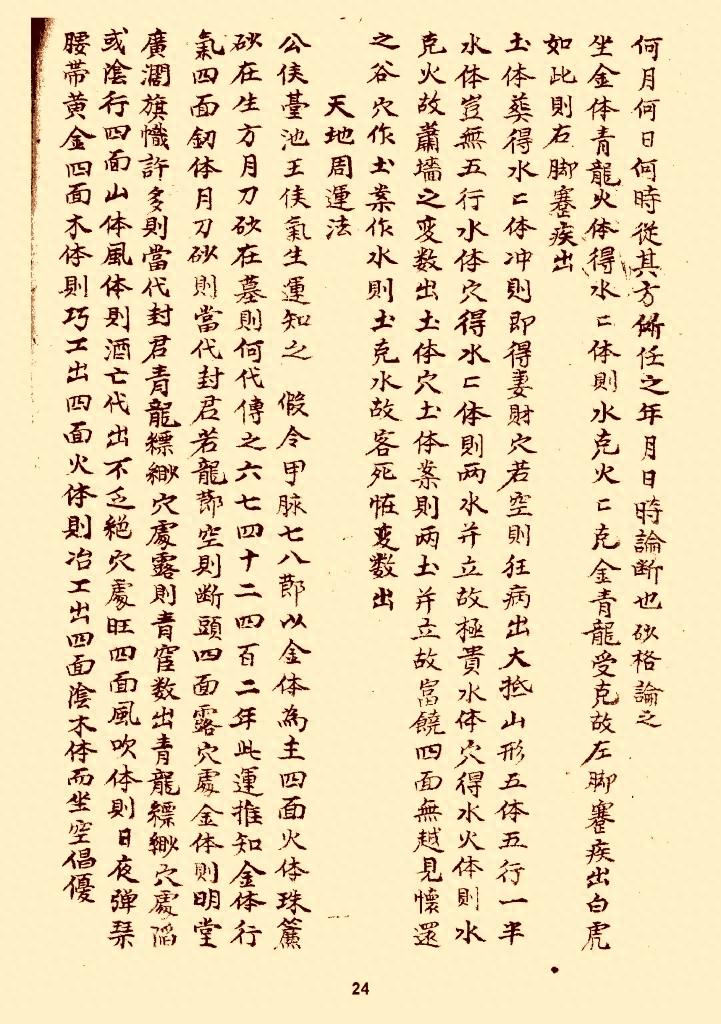 何月何日何時從其方所任之年月日時論断也砂格論之
坐金体青龍火体得水亡体則水克火亡克金青龍受克故左脚蹇疾出白虎
如此則右脚蹇疾出
土体葬得水亡体冲則即得妻財穴若空則狂病出大抵山形五体五行一半
水体豈無五行水体穴得水亡体則两水并立故極貴水体穴得水火体則水
克火故蕭墻之変数出土体穴土体案則两土并立故富饒四面無越見懷還
之谷穴作土案作水則土克水故客死恠变数出
天地周運法
公侯臺池王侯氣生運知之 假令甲脉七八節以金体為主四面火体珠簾
砂在生方月刀砂在墓則何代傳之六七四十二四百二年此運推知金体行
氣四面釰体月刀砂則當代封君若龍節空則断頭四面露穴處金体則明堂
廣濶旗幟許多則當代封君青龍縹緲穴處露則青盲数出青龍縹緲穴處陷
或陰行四面山体風体則酒亡代出不乏絶穴處旺四面風吹体則日夜弹琹
腰帶黄金四面木体則巧工出四面火体則冶工出四面陰木体而坐空倡優
24